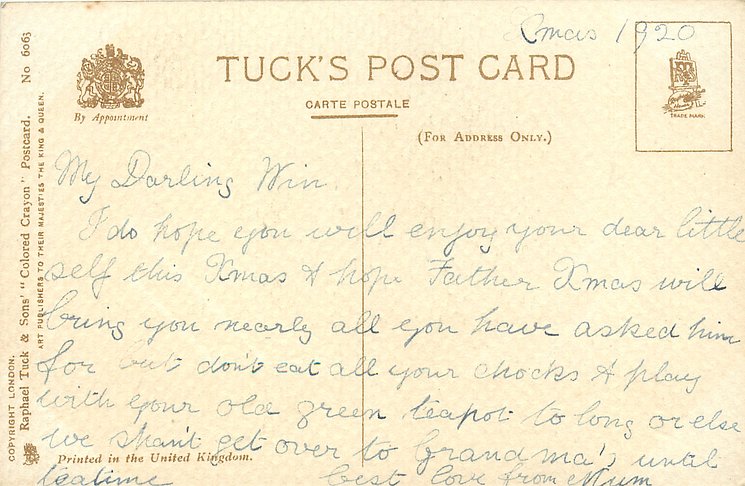 Xmas 1920
TUCK'S POST CARD
CARTE POSTALE
By Appointment
(FOR ADDRESS ONLY.)
TRADE MARK
COPYRIGHT LONDON.
Raphael Tuck & Sons' "Colored Crayon" Postcard. No 6063
ART PUBLISHERS TO THEIR MAJESTIES THE KING & QUEEN.
My Darling Win
I do hope you will enjoy your dear little
self this Xmas & hope Father Xmas will
bring you nearly all you have asked him
for but don't eat all your chocks & play
with your old green teapot to long or else
we shan't get over to Grandma's until
Printed in the United Kingdom.
teatime best love from Mum